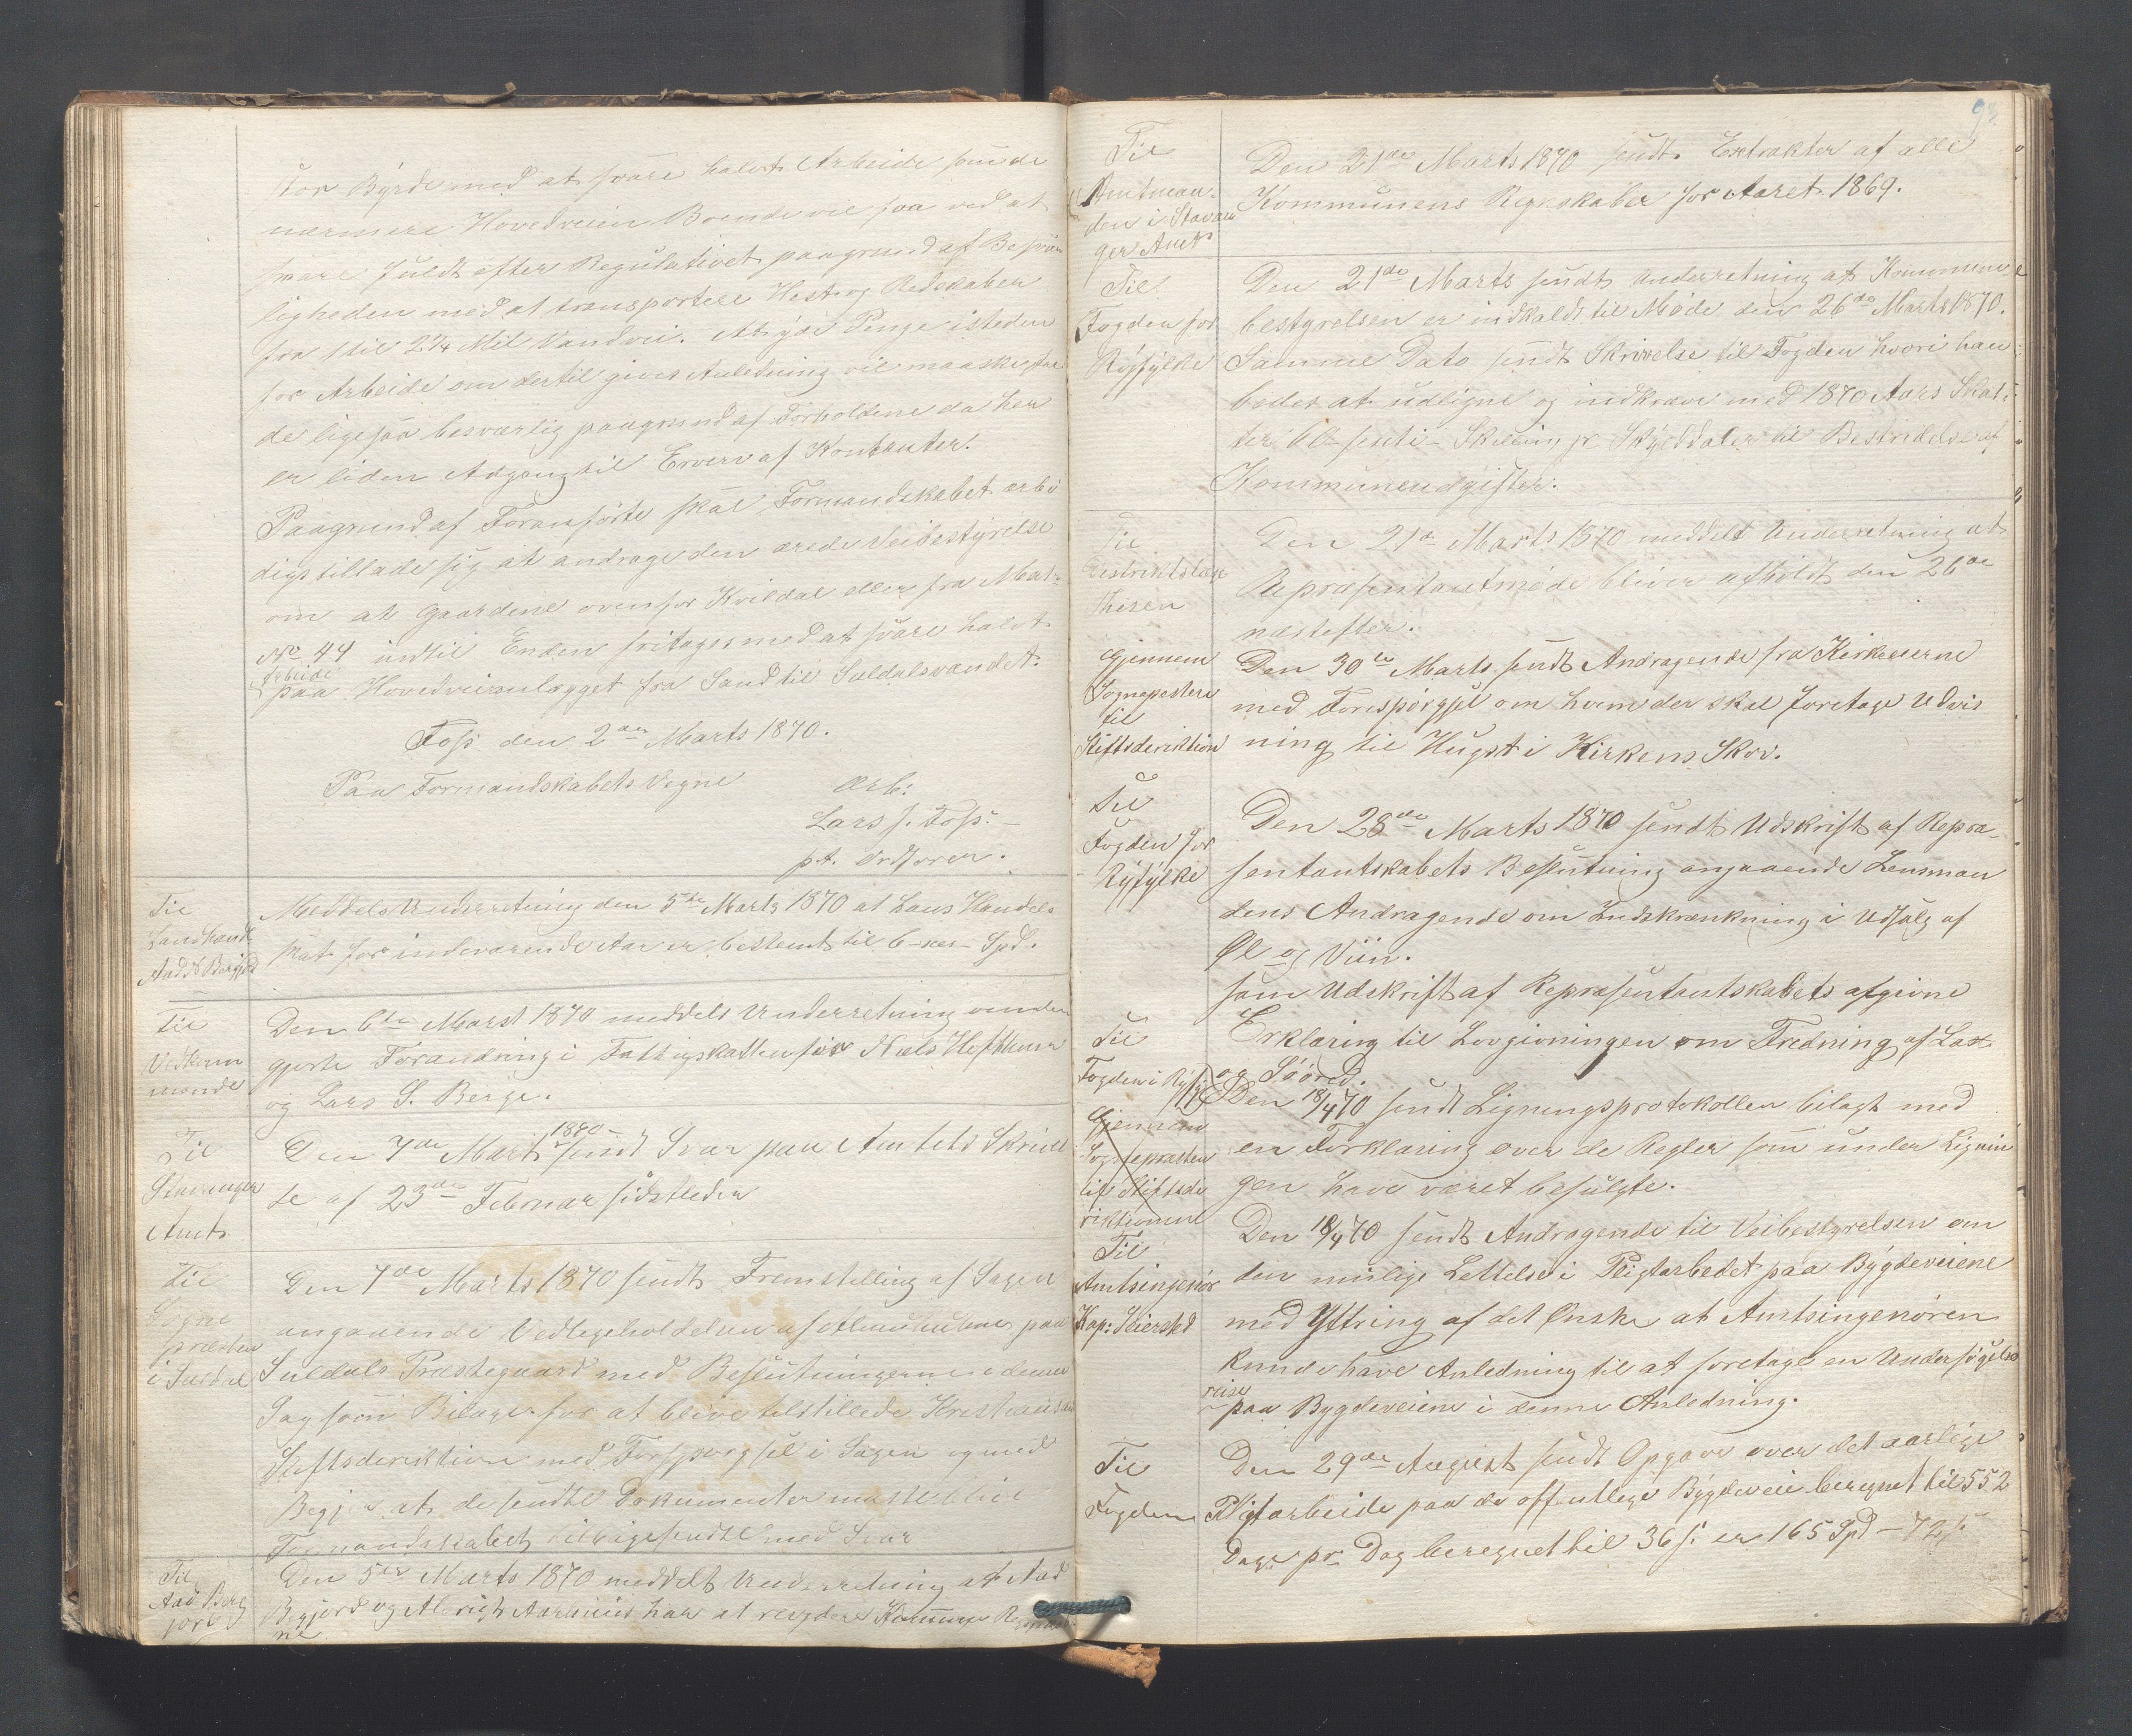 stor Byrde med at svare halvt Arbeide som de
nærmere Hovedveien Boende vil faa ved at
svare fuldt efter Regulativet paagrund af Besvær
ligheden med at transportere Hest og Redskaber
fra 1 til 2 1/4 Mil Vandvei. At yde Penge isteden
for Arbeide om dertil gives Anledning vil maaske
de ligesaa besværlig paagrund af Forholdene da her
er liden Adgang til Erverv af Kontanter.
Paagrund af Foranførte skal Formandskabet ærbø
digst tillade sig at andrage den ærede Veibestyrelse
om at Gaardene ovenfor Kvildal eller fra Mat.
No 44 indtil Enden fritages med at svare halvt
Arbeide
paa Hovedveianlægget fra Sand til Suldalsvandet.
Foss den 2den Marts 1870.
Paa Formandskabets Vegne
Ærb:
Lars J. Foss.
p.t. Ordfører.
Til
Landhandl
Aad N Bergjord
Meddelt Underretning den 5te Marts 1870 at hans Handels
skat for indeværende Aar er bestemt til 6 - sex - Spd.
Til
Vedkom
mende
Den 6te Marst 1870 meddelt Underretning om den
gjorte Forandring i Fattigskatten for Niels
og Lars S. Berge.
Til
Stavanger
Amt
Den 7de Mart 1870 sendt Svar paa Amtets Skrivel
se af 23de Februar sidstleden
Til
Sogne
præsten
i Suldal
Den 7de Marts 1870 sendt Fremstilling af Sagen
angaaende Vedligeholdelsen af paa
Suldals Præstegaard med Beslutningerne i denne
Sag som Bilage for at blive tilstillede Kristiansa
Stiftsdirektion med Forspørgsel i Sagen og med
Begjær at de sendte Dokumenter maatte blive
Formandskabet tilbagesendte med Svar
Til
Aad Berg
jord
Den 5te Marts 1870 meddelt Underretning at Aad
Bergjord og Aarhuus har at revidere Kommune Regnskab
ne
92
Til
Amtman
den i Stavan
ger Amt
Den 21de Marts 1870 sendt Extrakter af alle
Kommunens Regnskaber for Aaret 1869.
Til
Fogden for
Ryfylke
Den 21de Marts sendt Underretning at Kommune
bestyrelsen er indkaldt til Møde den 26de Marts 1870.
Samme Dato sendt Skrivelse til Fogden hvori han
bedes at udligne og indkræve med 1870 Aars Skat
ter Skilling pr Skylddaler til Bestridelse af
Kommuneudgifter.
Til
Distriktslæge
Thisen
Den 21de Marts 1870 meddelt Underretning at
Repræsentantmøde bliver afholdt den 26de
næstefter.
Gjennem
Sognepresten
til
Stiftsdirektion
Den 30te Marts sendt Andragende fra Kirkeeierne
med Forespørgsel om hvem der skal foretage Udvis
ning til Hugst i Kirkens Skov.
Til
Fogden for
Ryfylke
Den 28de Marts 1870 sendt Udskrift af Repræ
sentantskabets Beslutning angaaende Lensman
dens Andragende om Indskrænkning i Udsalg af
Øl og Viin.
som Udskrift af Repræsentantskabets afgivne
Erklæring til Lovgivningen om Fredning af Lax
og Søøred.
Til
Fogden i Ryfylke
Den 18/4 70 sendt Ligningsprotokollen bilagt med
en Forklaring over de Regler som under Lignin
gen have været befulgte.
Gjennem
Sognepræsten
til Stiftsdi
rektionen
Til
Amtsingeniør
Kap: Seiersted
Den 18/4 70 sendt Andragende til Veibestyrelsen om
den mulige Lettelse i Pligtarbedet paa Bygdeveiene
med Yttring af det Ønske at Amtsingenøren
kunde have Anledning til at foretage en Undersøgelse
reise
paa Bygdeveiene i denne Anledning.
Til
Fogden
Den 29de August sendt Opgave over det aarlige
Pligtarbeide paa de offentlige Bygdeveie beregnet til 552
Dage pr Dag beregnet til 36 s. er 165 Spd - 72 s.